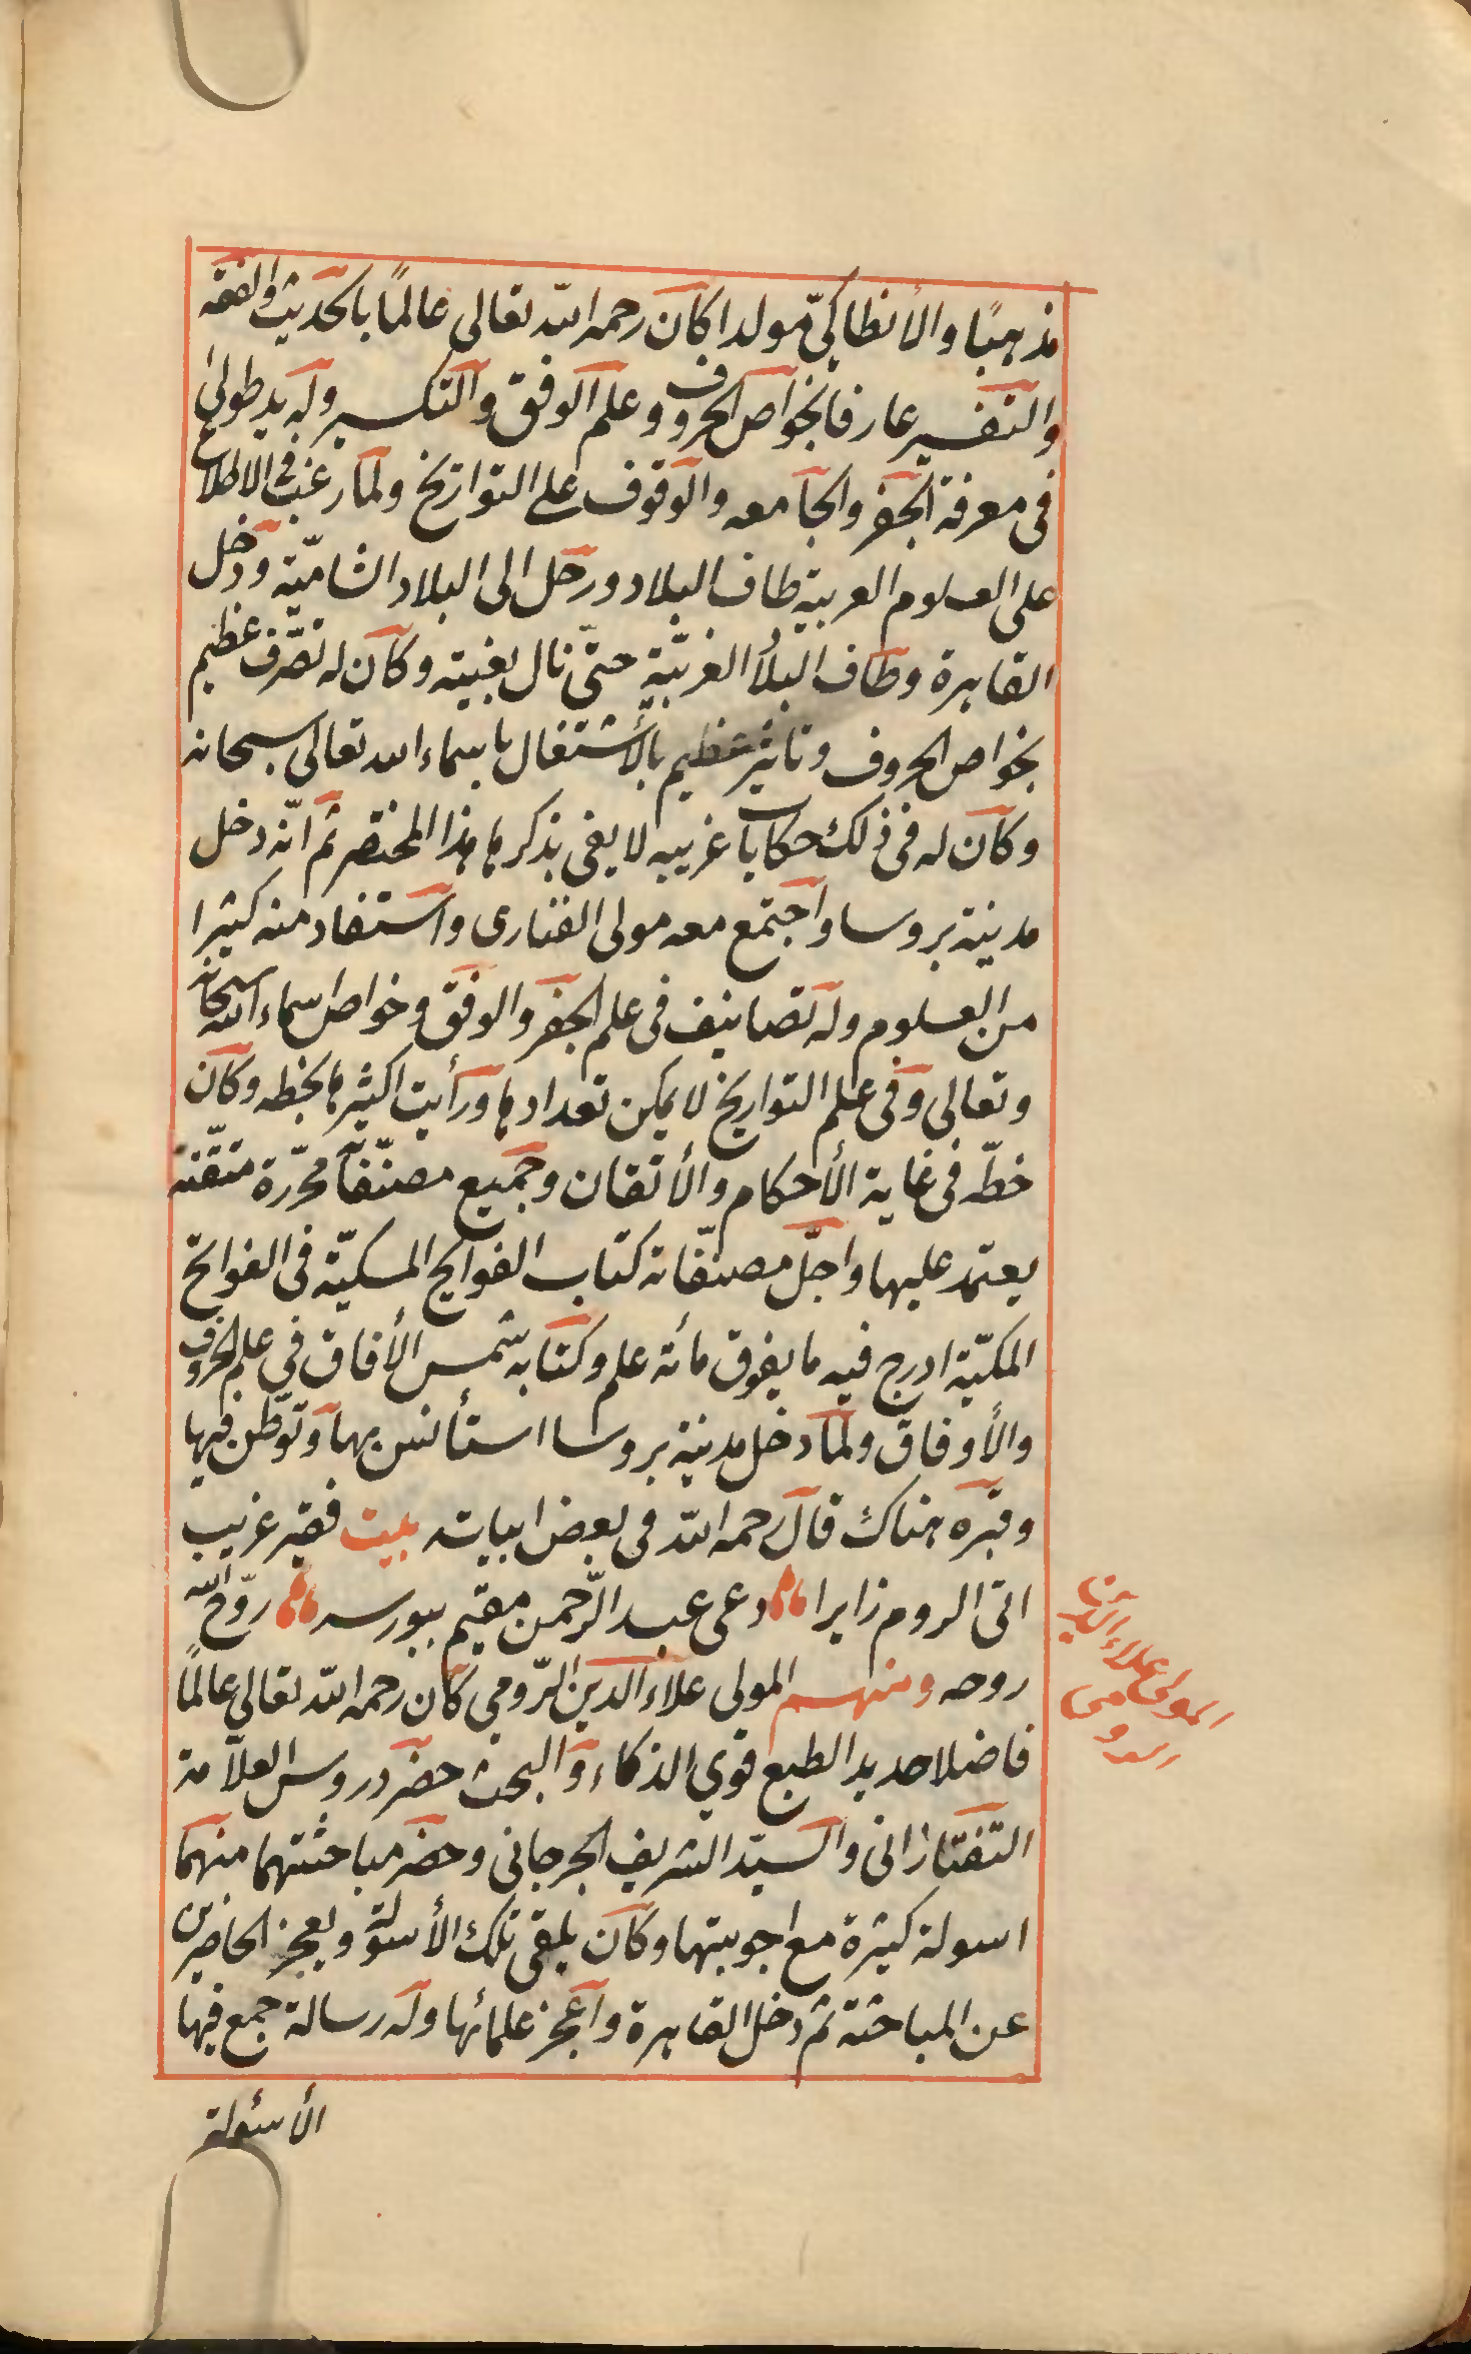 مذهبًا والأنطاكيّ مولدا كان رحمه الله تعالى عالمًا بالحديث والفقه
والتفسير عارفا بخواص الحروف وعلم الوفق والتكسير وله يد طولى
فى معرفة الجفر والجامعه والوقوف على التواريخ ولما رغب فى الاطلاع
على العلوم العربية طاف البلاد ورحل الى البلاد الشاميّة ودخل
القاهرة وطاف البلاد الغربيّة حتىّ نال بغيته وكان له تصّرف عظيم
بخواص الحروف وتاثير عظيم بالأشتغال باسماء الله تعالى سبحانه
وكان له فى ذلك حكايات غريبه لا يفى بذكرها هذا المختصر ثم انّه دخل
مدينة بروسا واجتمع معه مولى الفنارى واستفاد منه كثيرا
من العلوم وله تصانيف فى علم الجفر والوفق وخواص اسماء الله سبحانه
وتعالى وفى علم التواريخ لا يمكن تعدادها ورأيت اكثرها بخطه وكان
خطّه فى غاية الأحكام والأتقان وجميع مصنّفاته محرّرة متقّنة
يعتمد عليها واجلّ مصنّفاته كتاب الفوايح المسكيّة فى الفواتح
المكيّة ادرج فيه ما يفوق مائة علم وكتابه شمس الأفاق في علم الحروف
والأوفاق ولما دخل مدينة بروسا استأنس بها وتوّطن فيها
وقبره هناك قال رحمه الله فى بعض ابياته بيت فقير غريب
اتى الروم زايرا دعى عبد الرّحمن مقيم ببورسه روّح الله
روحه ومنهم المولى علاء الدين الرّومي كان رحمه الله تعالى عالمًا
فاضلا حديد الطبع قوي الذكاء والبحث حضر دروس العلاّمة
التفتازانى والسيّد الشريف الجرجانى وحضر مباحثتهما منهما
اسولة كثيرة مع اجوبتها وكان يلقى تلك الأسولة ويعجز الحاضرين
عن المباحثة ثم دخل القاهرة وأعجز علمائها وله رسالة جمع فيها
الأسئولة
المولى علاء الدين
الرومى